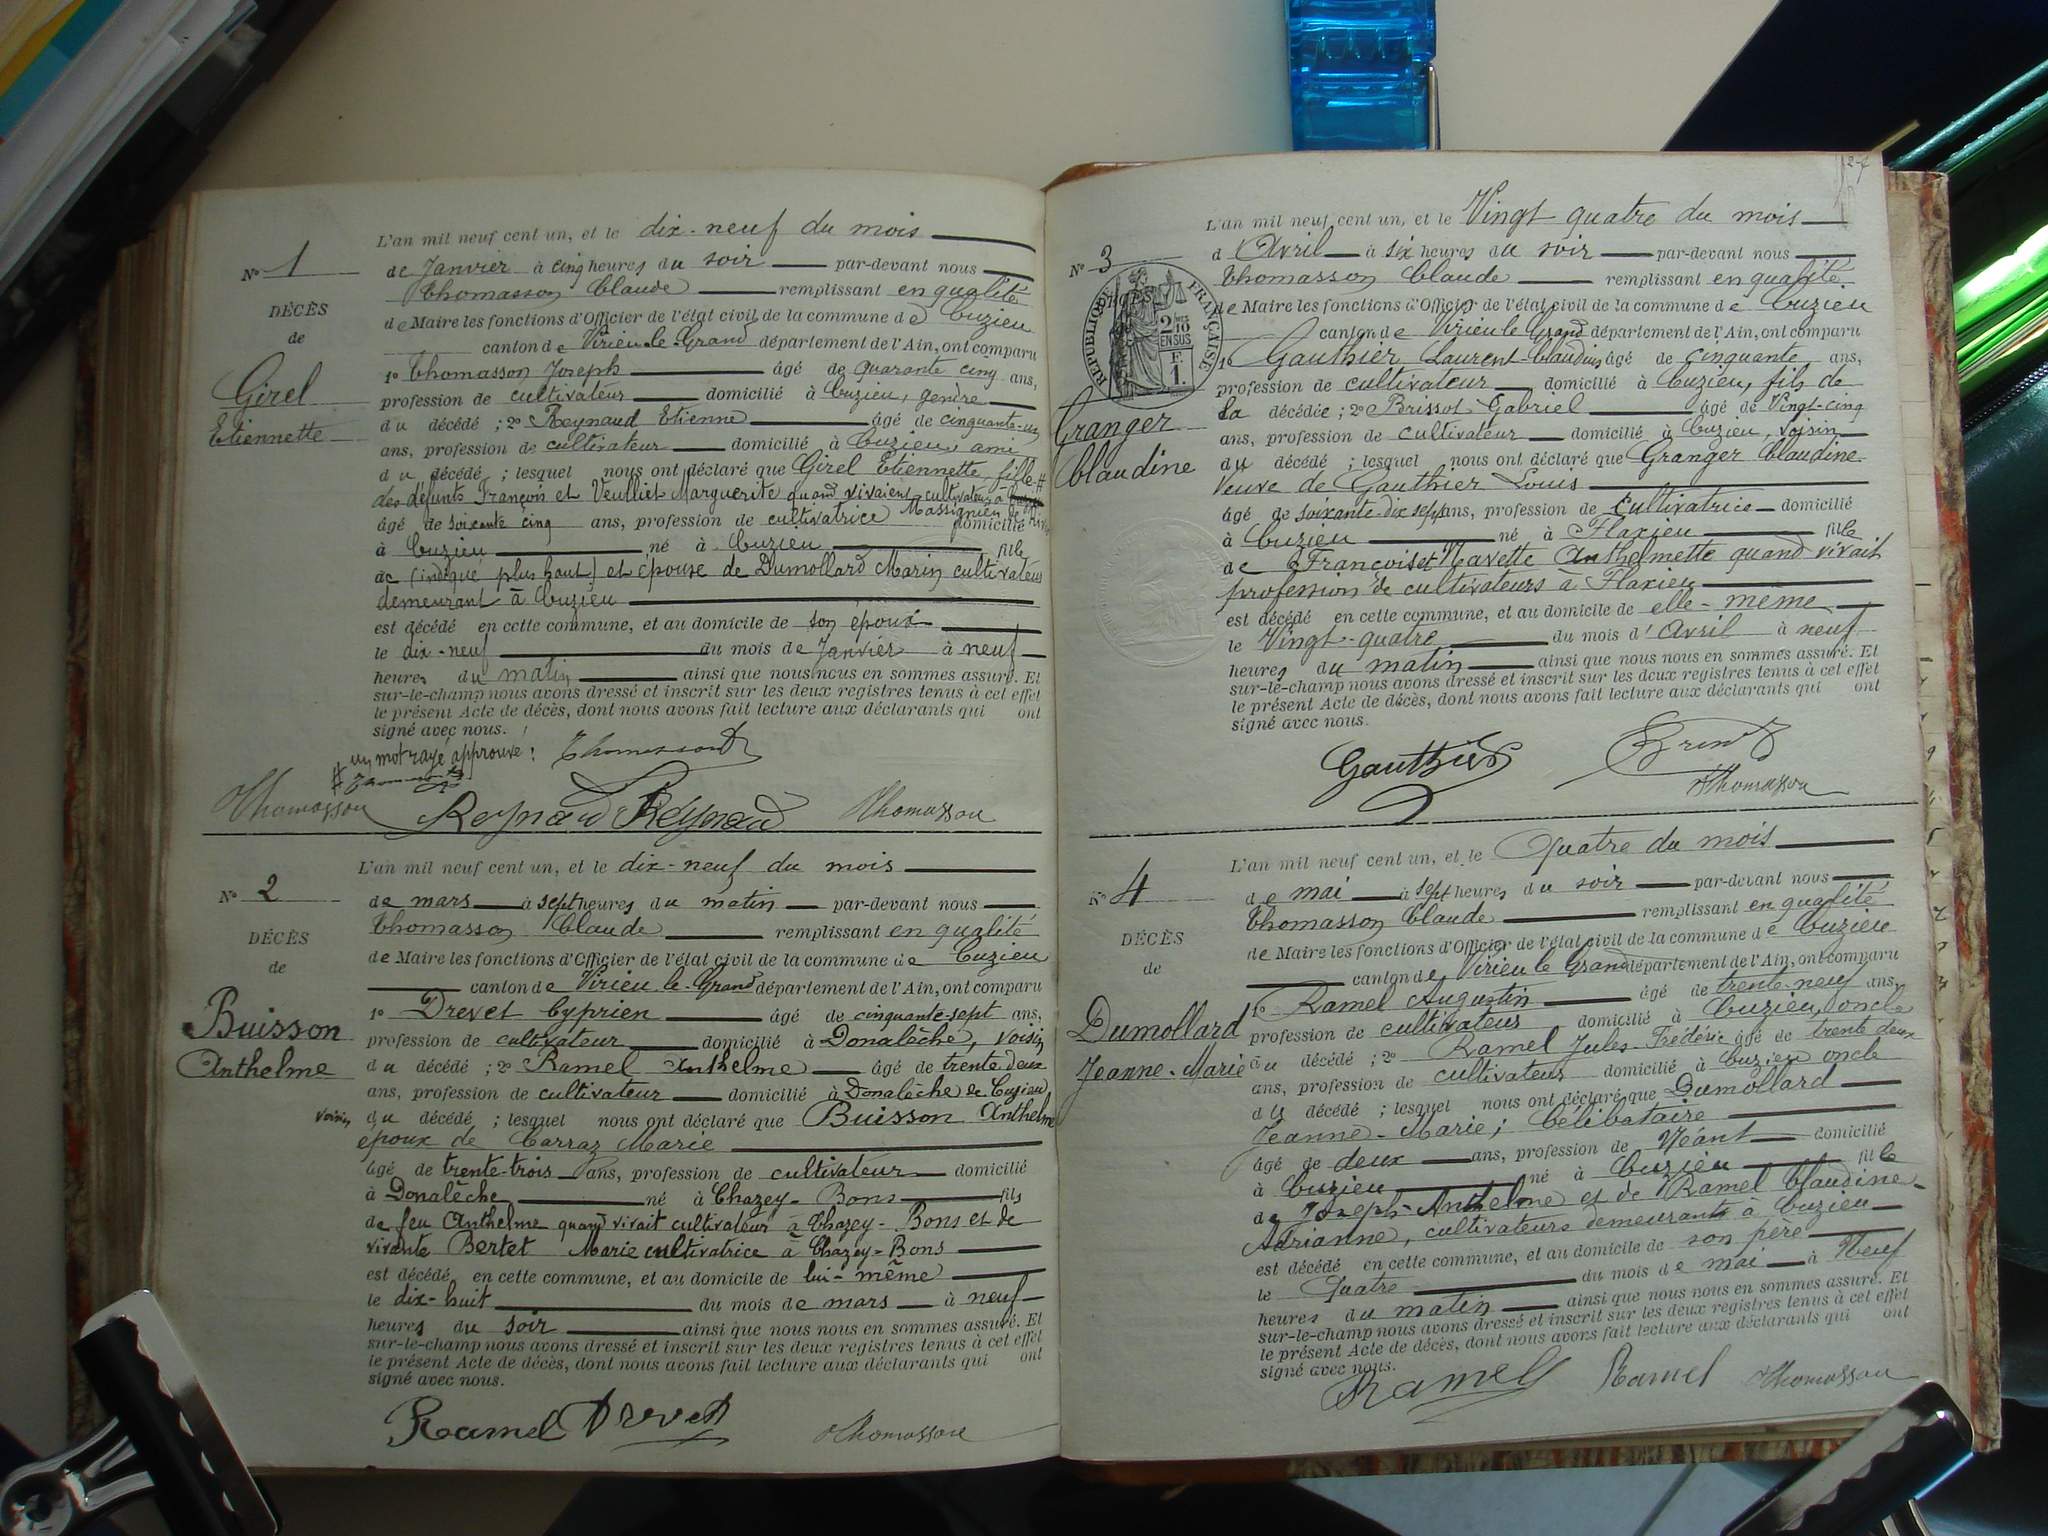 N° 1
DÉCÈS
de
Girel
Etiennette
L'an mil neuf cent un, et le dix-neuf du mois
de Janvier à cinq heures du soir par-devant nous
Thomasson Claude remplissant en qualité
de Maire les fonctions d'Officier de l'état civil de la commune de Cuzieu
canton de Virieu-le-Grand département de l'Ain, ont comparu
1° Thomasson Joseph âgé de quarante cinq ans,
profession de cultivateur domicilié à Cuzieu, gendre
du décédé ; 2° Reynaud Etienne âgé de cinquante-un
ans, profession de cultivateur domicilié à Cuzieu, ami
du décédé ; lesquel nous ont déclaré que Girel Etiennette, fille #
des défunts François et Veulliet Marguerite quand vivaient cultivateurs à
Massignieu de
âgé de soixante cinq ans, profession de cultivatrice domicilié
à Cuzieu né à Cuzieu fille
de (indiqué plus haut) et épouse de Dumollard Marin cultivateur
demeurant à Cuzieu
est décédé en cette commune, et au domicile de son époux
le dix-neuf du mois de Janvier à neuf
heures du matin ainsi que nous nous en sommes assuré. Et
sur-le-champ nous avons dressé et inscrit sur les deux registres tenus à cet effet
le présent Acte de décès, dont nous avons fait lecture aux déclarants qui ont
signé avec nous.
# un mot rayé approuvé : Thomasson
Thomasson Reynaud Reynaud Thomasson
N° 2
DÉCÈS
de
Buisson
Anthelme
L'an mil neuf cent un, et le dix-neuf du mois
de mars à sept heures du matin par-devant nous
Thomasson Claude remplissant en qualité
de Maire les fonctions d'Officier de l'état civil de la commune de Cuzieu
canton de Virieu-le-Grand département de l'Ain, ont comparu
1° Drevet Cyprien âgé de cinquante-sept ans,
profession de cultivateur domicilié à Donalèche, voisin
du décédé ; 2° Ramel Anthelme âgé de trente deux
ans, profession de cultivateur domicilié à Donalèche de Cuzieu,
voisin du décédé ; lesquel nous ont déclaré que Buisson Anthelme
époux de Carraz Marie
âgé de trente-trois ans, profession de cultivateur domicilié
à Donalèche né à Chazey-Bons fils
de feu Anthelme quand vivait cultivateur à Chazey-Bons et de
vivante Bertet Marie cultivatrice à Chazey-Bons
est décédé en cette commune, et au domicile de lui-même
le dix-huit du mois de mars à neuf
heures du soir ainsi que nous nous en sommes assuré. Et
sur-le-champ nous avons dressé et inscrit sur les deux registres tenus à cet effet
le présent Acte de décès, dont nous avons fait lecture aux déclarants qui ont
signé avec nous.
Ramel Drevet Thomasson
N° 3
RÉPUBLIQUE FRANÇAISE
2/10
EN SUS
F.
1.
Granger
Claudine
L'an mil neuf cent un, et le Vingt quatre du mois
d'Avril à six heures du soir par-devant nous
Thomasson Claude remplissant en qualité
de Maire les fonctions d'Officier de l'état civil de la commune de Cuzieu
canton de Virieu le Grand département de l'Ain, ont comparu
1° Gauthier Laurent-Claudius âgé de cinquante ans,
profession de cultivateur domicilié à Cuzieu, fils de
la décédée ; 2° Brissot Gabriel âgé de Vingt-cinq
ans, profession de cultivateur domicilié à Cuzieu, voisin
du décédé ; lesquel nous ont déclaré que Granger Claudine
veuve de Gauthier Louis
âgé de soixante-dix sept ans, profession de Cultivatrice domicilié
à Cuzieu né à Flaxieu fille
de François et Navette Anthelmette quand vivait
profession de cultivateurs à Flaxieu
est décédé en cette commune, et au domicile de elle-même
le Vingt-quatre du mois d'Avril à neuf
heures du matin ainsi que nous nous en sommes assuré. Et
sur-le-champ nous avons dressé et inscrit sur les deux registres tenus à cet effet
le présent Acte de décès, dont nous avons fait lecture aux déclarants qui ont
signé avec nous.
Gauthier
Thomasson
N° 4
DÉCÈS
de
Dumollard
Jeanne-Marie
L'an mil neuf cent un, et le Quatre du mois
de mai à sept heures du soir par-devant nous
Thomasson Claude remplissant en qualité
de Maire les fonctions d'Officier de l'état civil de la commune de Cuzieu
canton de Virieu le Grand département de l'Ain, ont comparu
1° Ramel Augustin âgé de trente-neuf ans,
profession de cultivateur domicilié à Cuzieu, oncle
du décédé ; 2° Ramel Jules-Frédéric âgé de trente deux
ans, profession de cultivateur domicilié à Cuzieu oncle
du décédé ; lesquel nous ont déclaré que Dumollard
Jeanne-Marie, Célibataire
âgé de deux ans, profession de Néant domicilié
à Cuzieu né à Cuzieu fille
de Joseph-Anthelme et de Ramel Claudine-
Adrianne, cultivateurs demeurant à Cuzieu
est décédé en cette commune, et au domicile de son père
le Quatre du mois de mai à Neuf
heures du matin ainsi que nous nous en sommes assuré. Et
sur-le-champ nous avons dressé et inscrit sur les deux registres tenus à cet effet
le présent Acte de décès, dont nous avons fait lecture aux déclarants qui ont
signé avec nous.
Ramel Ramel Thomasson